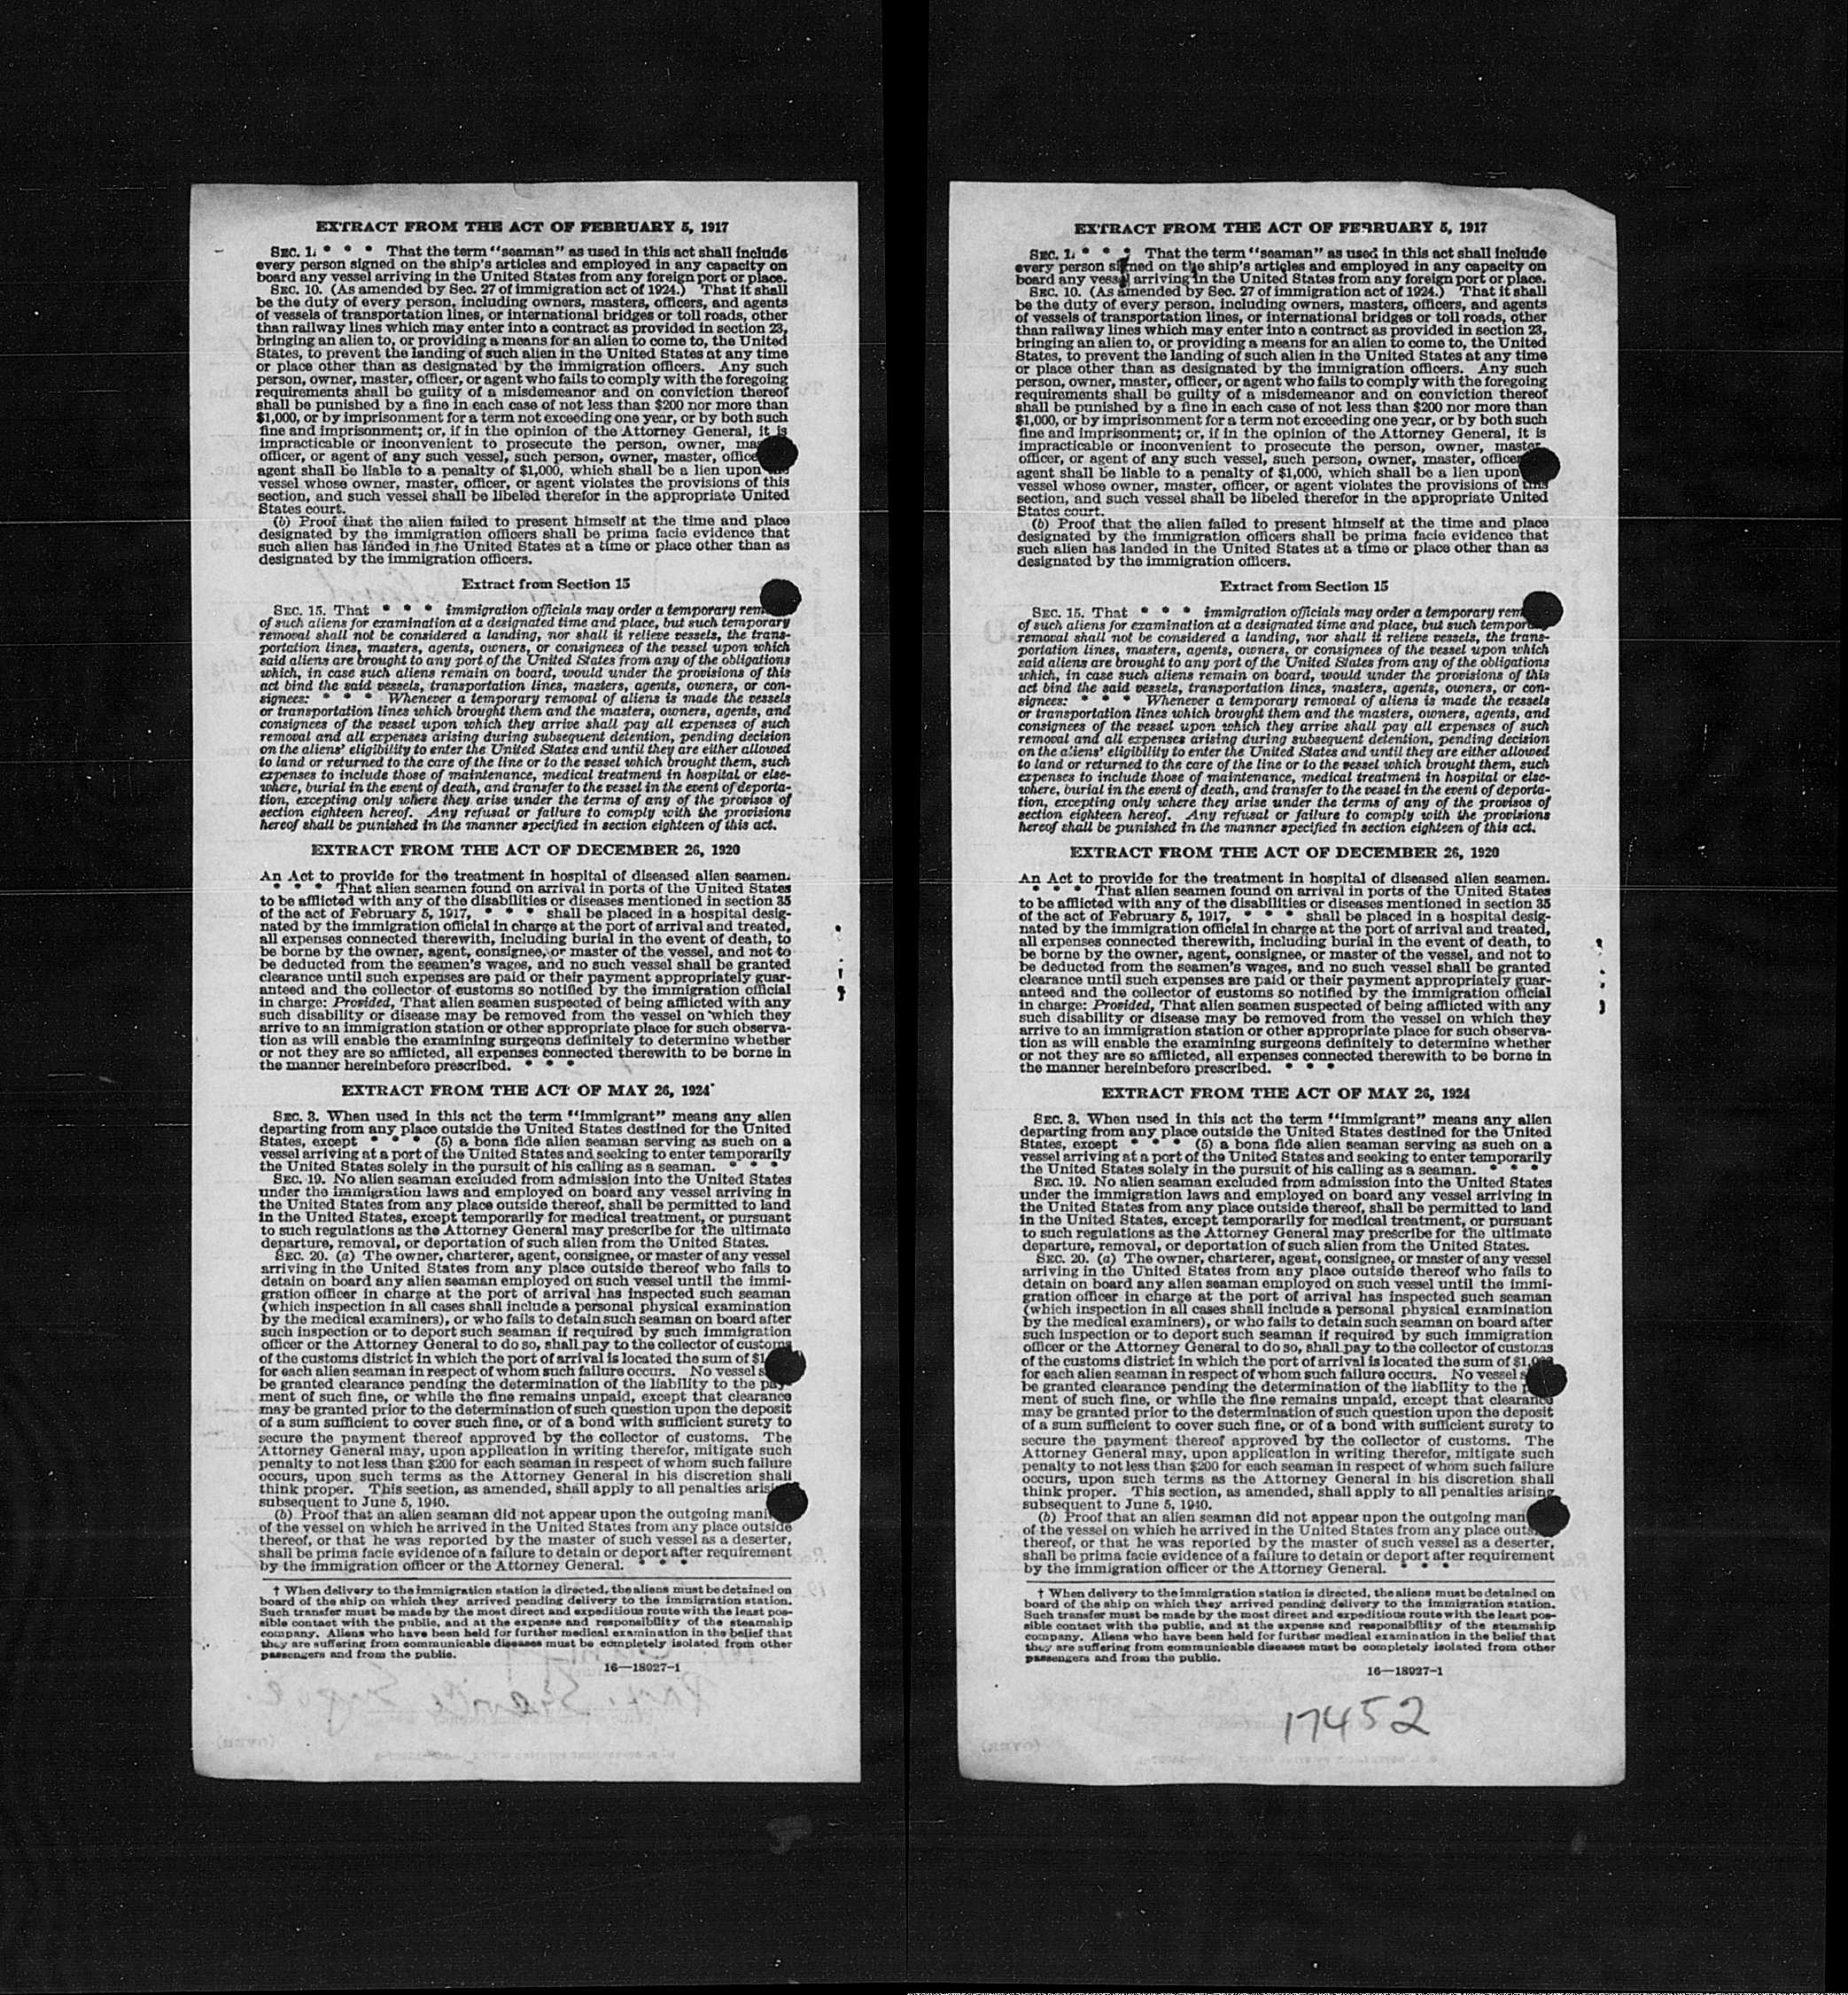 EXTRACT FROM THE ACT OF FEBRUARY 5, 1917
SEC. 1. * * * That the term "seaman" as used in this act shall include
every person signed on the ship's articles and employed in any capacity on
board any vessel arriving in the United States from any foreign port or place.
SEC. 10. (As amended by Sec. 27 of immigration act of 1924.) That it shall
be the duty of every person, including owners, masters, officers, and agents
of vessels of transportation lines, or international bridges or toll roads, other
than railway lines which may enter into a contract as provided in section 23,
bringing an alien to, or providing a means for an alien to come to, the United
States, to prevent the landing of such alien in the United States at any time
or place other than as designated by the immigration officers. Any such
person, owner, master, officer, or agent who fails to comply with the foregoing
requirements shall be guilty of a misdemeanor and on conviction thereof
shall be punished by a fine in each case of not less than $200 nor more than
$1,000, or by imprisonment for a term not exceeding one year, or by both such
fine and imprisonment; or, if in the opinion of the Attorney General, it is
impracticable or inconvenient to prosecute the person, owner,
officer, or agent of any such vessel, such person, owner, master,
agent shall be liable to a penalty of $1,000, which shall be a lien upon
vessel whose owner, master, officer, or agent violates the provisions of this
section, and such vessel shall be libeled therefor in the appropriate United
States court.
(b) Proof that the alien failed to present himself at the time and place
designated by the immigration officers shall be prima facie evidence that
such alien has landed in the United States at a time or place other than as
designated by the immigration officers.
Extract from Section 15
SEC. 15. That * * * immigration officials may order a temporary
of such aliens for examination at a designated time and place, but such temporary
removal shall not be considered a landing, nor shall it relieve vessels, the trans-
portation lines, masters, agents, owners, or consignees of the vessel upon which
said aliens are brought to any port of the United States from any of the obligations
which, in case such aliens remain on board, would under the provisions of this
act bind the said vessels, transportation lines, masters, agents, owners, or con-
signees: * * * Whenever a temporary removal of aliens is made the vessels
or transportation lines which brought them and the masters, owners, agents, and
consignees of the vessel upon which they arrive shall pay all expenses of such
removal and all expenses arising during subsequent detention, pending decision
on the aliens' eligibility to enter the United States and until they are either allowed
to land or returned to the care of the line or to the vessel which brought them, such
expenses to include those of maintenance, medical treatment in hospital or else-
where, burial in the event of death, and transfer to the vessel in the event of deporta-
tion, excepting only where they arise under the terms of any of the provisos of
section eighteen hereof. Any refusal or failure to comply with the provisions
hereof shall be punished in the manner specified in section eighteen of this act.
EXTRACT FROM THE ACT OF DECEMBER 26, 1920
An Act to provide for the treatment in hospital of diseased alien seamen.
* * * That alien seamen found on arrival in ports of the United States
to be afflicted with any of the disabilities or diseases mentioned in section 35
of the act of February 5, 1917, * * * shall be placed in a hospital desig-
nated by the immigration official in charge at the port of arrival and treated,
all expenses connected therewith, including burial in the event of death, to
be borne by the owner, agent, consignee, or master of the vessel, and not to
be deducted from the seamen's wages, and no such vessel shall be granted
clearance until such expenses are paid or their payment appropriately guar-
anteed and the collector of customs so notified by the immigration official
in charge: Provided, That alien seamen suspected of being afflicted with any
such disability or disease may be removed from the vessel on which they
arrive to an immigration station or other appropriate place for such observa-
tion as will enable the examining surgeons definitely to determine whether
or not they are so afflicted, all expenses connected therewith to be borne in
the manner hereinbefore prescribed. * * *
EXTRACT FROM THE ACT OF MAY 26, 1924
SEC. 3. When used in this act the term "immigrant" means any alien
departing from any place outside the United States destined for the United
States, except * * * (5) a bona fide alien seaman serving as such on a
vessel arriving at a port of the United States and seeking to enter temporarily
the United States solely in the pursuit of his calling as a seaman. * * *
SEC. 19. No alien seaman excluded from admission into the United States
under the immigration laws and employed on board any vessel arriving in
the United States from any place outside thereof, shall be permitted to land
in the United States, except temporarily for medical treatment, or pursuant
to such regulations as the Attorney General may prescribe for the ultimate
departure, removal, or deportation of such alien from the United States.
SEC. 20. (a) The owner, charterer, agent, consignee, or master of any vessel
arriving in the United States from any place outside thereof who fails to
detain on board any alien seaman employed on such vessel until the immi-
gration officer in charge at the port of arrival has inspected such seaman
(which inspection in all cases shall include a personal physical examination
by the medical examiners), or who fails to detain such seaman on board after
such inspection or to deport such seaman if required by such immigration
officer or the Attorney General to do so, shall pay to the collector of customs
of the customs district in which the port of arrival is located the sum of
for each alien seaman in respect of whom such failure occurs. No vessel
be granted clearance pending the determination of the liability to the pay-
ment of such fine, or while the fine remains unpaid, except that clearance
may be granted prior to the determination of such question upon the deposit
of a sum sufficient to cover such fine, or of a bond with sufficient surety to
secure the payment thereof approved by the collector of customs. The
Attorney General may, upon application in writing therefor, mitigate such
penalty to not less than $200 for each seaman in respect of whom such failure
occurs, upon such terms as the Attorney General in his discretion shall
think proper. This section, as amended, shall apply to all penalties arising
subsequent to June 5, 1940.
(b) Proof that an alien seaman did not appear upon the outgoing
of the vessel on which he arrived in the United States from any place outside
thereof, or that he was reported by the master of such vessel as a deserter,
shall be prima facie evidence of a failure to detain or deport after requirement
by the immigration officer or the Attorney General. * * *
† When delivery to the immigration station is directed, the aliens must be detained on
board of the ship on which they arrived pending delivery to the immigration station.
Such transfer must be made by the most direct and expeditious route with the least pos-
sible contact with the public, and at the expense and responsibility of the steamship
company. Aliens who have been held for further medical examination in the belief that
they are suffering from communicable diseases must be completely isolated from other
passengers and from the public.
16—18927-1
EXTRACT FROM THE ACT OF FEBRUARY 5, 1917
SEC. 1. * * * That the term "seaman" as used in this act shall include
every person signed on the ship's articles and employed in any capacity on
board any vessel arriving in the United States from any foreign port or place.
SEC. 10. (As amended by Sec. 27 of immigration act of 1924.) That it shall
be the duty of every person, including owners, masters, officers, and agents
of vessels of transportation lines, or international bridges or toll roads, other
than railway lines which may enter into a contract as provided in section 23,
bringing an alien to, or providing a means for an alien to come to, the United
States, to prevent the landing of such alien in the United States at any time
or place other than as designated by the immigration officers. Any such
person, owner, master, officer, or agent who fails to comply with the foregoing
requirements shall be guilty of a misdemeanor and on conviction thereof
shall be punished by a fine in each case of not less than $200 nor more than
$1,000, or by imprisonment for a term not exceeding one year, or by both such
fine and imprisonment; or, if in the opinion of the Attorney General, it is
impracticable or inconvenient to prosecute the person, owner, master,
officer, or agent of any such vessel, such person, owner, master, officer
agent shall be liable to a penalty of $1,000, which shall be a lien upon
vessel whose owner, master, officer, or agent violates the provisions of this
section, and such vessel shall be libeled therefor in the appropriate United
States court.
(b) Proof that the alien failed to present himself at the time and place
designated by the immigration officers shall be prima facie evidence that
such alien has landed in the United States at a time or place other than as
designated by the immigration officers.
Extract from Section 15
SEC. 15. That * * * immigration officials may order a temporary
of such aliens for examination at a designated time and place, but such temporary
removal shall not be considered a landing, nor shall it relieve vessels, the trans-
portation lines, masters, agents, owners, or consignees of the vessel upon which
said aliens are brought to any port of the United States from any of the obligations
which, in case such aliens remain on board, would under the provisions of this
act bind the said vessels, transportation lines, masters, agents, owners, or con-
signees: * * * Whenever a temporary removal of aliens is made the vessels
or transportation lines which brought them and the masters, owners, agents, and
consignees of the vessel upon which they arrive shall pay all expenses of such
removal and all expenses arising during subsequent detention, pending decision
on the aliens' eligibility to enter the United States and until they are either allowed
to land or returned to the care of the line or to the vessel which brought them, such
expenses to include those of maintenance, medical treatment in hospital or else-
where, burial in the event of death, and transfer to the vessel in the event of deporta-
tion, excepting only where they arise under the terms of any of the provisos of
section eighteen hereof. Any refusal or failure to comply with the provisions
hereof shall be punished in the manner specified in section eighteen of this act.
EXTRACT FROM THE ACT OF DECEMBER 26, 1920
An Act to provide for the treatment in hospital of diseased alien seamen.
* * * That alien seamen found on arrival in ports of the United States
to be afflicted with any of the disabilities or diseases mentioned in section 35
of the act of February 5, 1917, * * * shall be placed in a hospital desig-
nated by the immigration official in charge at the port of arrival and treated,
all expenses connected therewith, including burial in the event of death, to
be borne by the owner, agent, consignee, or master of the vessel, and not to
be deducted from the seamen's wages, and no such vessel shall be granted
clearance until such expenses are paid or their payment appropriately guar-
anteed and the collector of customs so notified by the immigration official
in charge: Provided, That alien seamen suspected of being afflicted with any
such disability or disease may be removed from the vessel on which they
arrive to an immigration station or other appropriate place for such observa-
tion as will enable the examining surgeons definitely to determine whether
or not they are so afflicted, all expenses connected therewith to be borne in
the manner hereinbefore prescribed. * * *
EXTRACT FROM THE ACT OF MAY 26, 1924
SEC. 3. When used in this act the term "immigrant" means any alien
departing from any place outside the United States destined for the United
States, except * * * (5) a bona fide alien seaman serving as such on a
vessel arriving at a port of the United States and seeking to enter temporarily
the United States solely in the pursuit of his calling as a seaman. * * *
SEC. 19. No alien seaman excluded from admission into the United States
under the immigration laws and employed on board any vessel arriving in
the United States from any place outside thereof, shall be permitted to land
in the United States, except temporarily for medical treatment, or pursuant
to such regulations as the Attorney General may prescribe for the ultimate
departure, removal, or deportation of such alien from the United States.
SEC. 20. (a) The owner, charterer, agent, consignee, or master of any vessel
arriving in the United States from any place outside thereof who fails to
detain on board any alien seaman employed on such vessel until the immi-
gration officer in charge at the port of arrival has inspected such seaman
(which inspection in all cases shall include a personal physical examination
by the medical examiners), or who fails to detain such seaman on board after
such inspection or to deport such seaman if required by such immigration
officer or the Attorney General to do so, shall pay to the collector of customs
of the customs district in which the port of arrival is located the sum of $1,000
for each alien seaman in respect of whom such failure occurs. No vessel
be granted clearance pending the determination of the liability to the
ment of such fine, or while the fine remains unpaid, except that clearance
may be granted prior to the determination of such question upon the deposit
of a sum sufficient to cover such fine, or of a bond with sufficient surety to
secure the payment thereof approved by the collector of customs. The
Attorney General may, upon application in writing therefor, mitigate such
penalty to not less than $200 for each seaman in respect of whom such failure
occurs, upon such terms as the Attorney General in his discretion shall
think proper. This section, as amended, shall apply to all penalties arising
subsequent to June 5, 1940.
(b) Proof that an alien seaman did not appear upon the outgoing
of the vessel on which he arrived in the United States from any place outside
thereof, or that he was reported by the master of such vessel as a deserter,
shall be prima facie evidence of a failure to detain or deport after requirement
by the immigration officer or the Attorney General. * * *
† When delivery to the immigration station is directed, the aliens must be detained on
board of the ship on which they arrived pending delivery to the immigration station.
Such transfer must be made by the most direct and expeditious route with the least pos-
sible contact with the public, and at the expense and responsibility of the steamship
company. Aliens who have been held for further medical examination in the belief that
they are suffering from communicable diseases must be completely isolated from other
passengers and from the public.
16—18927-1
17452